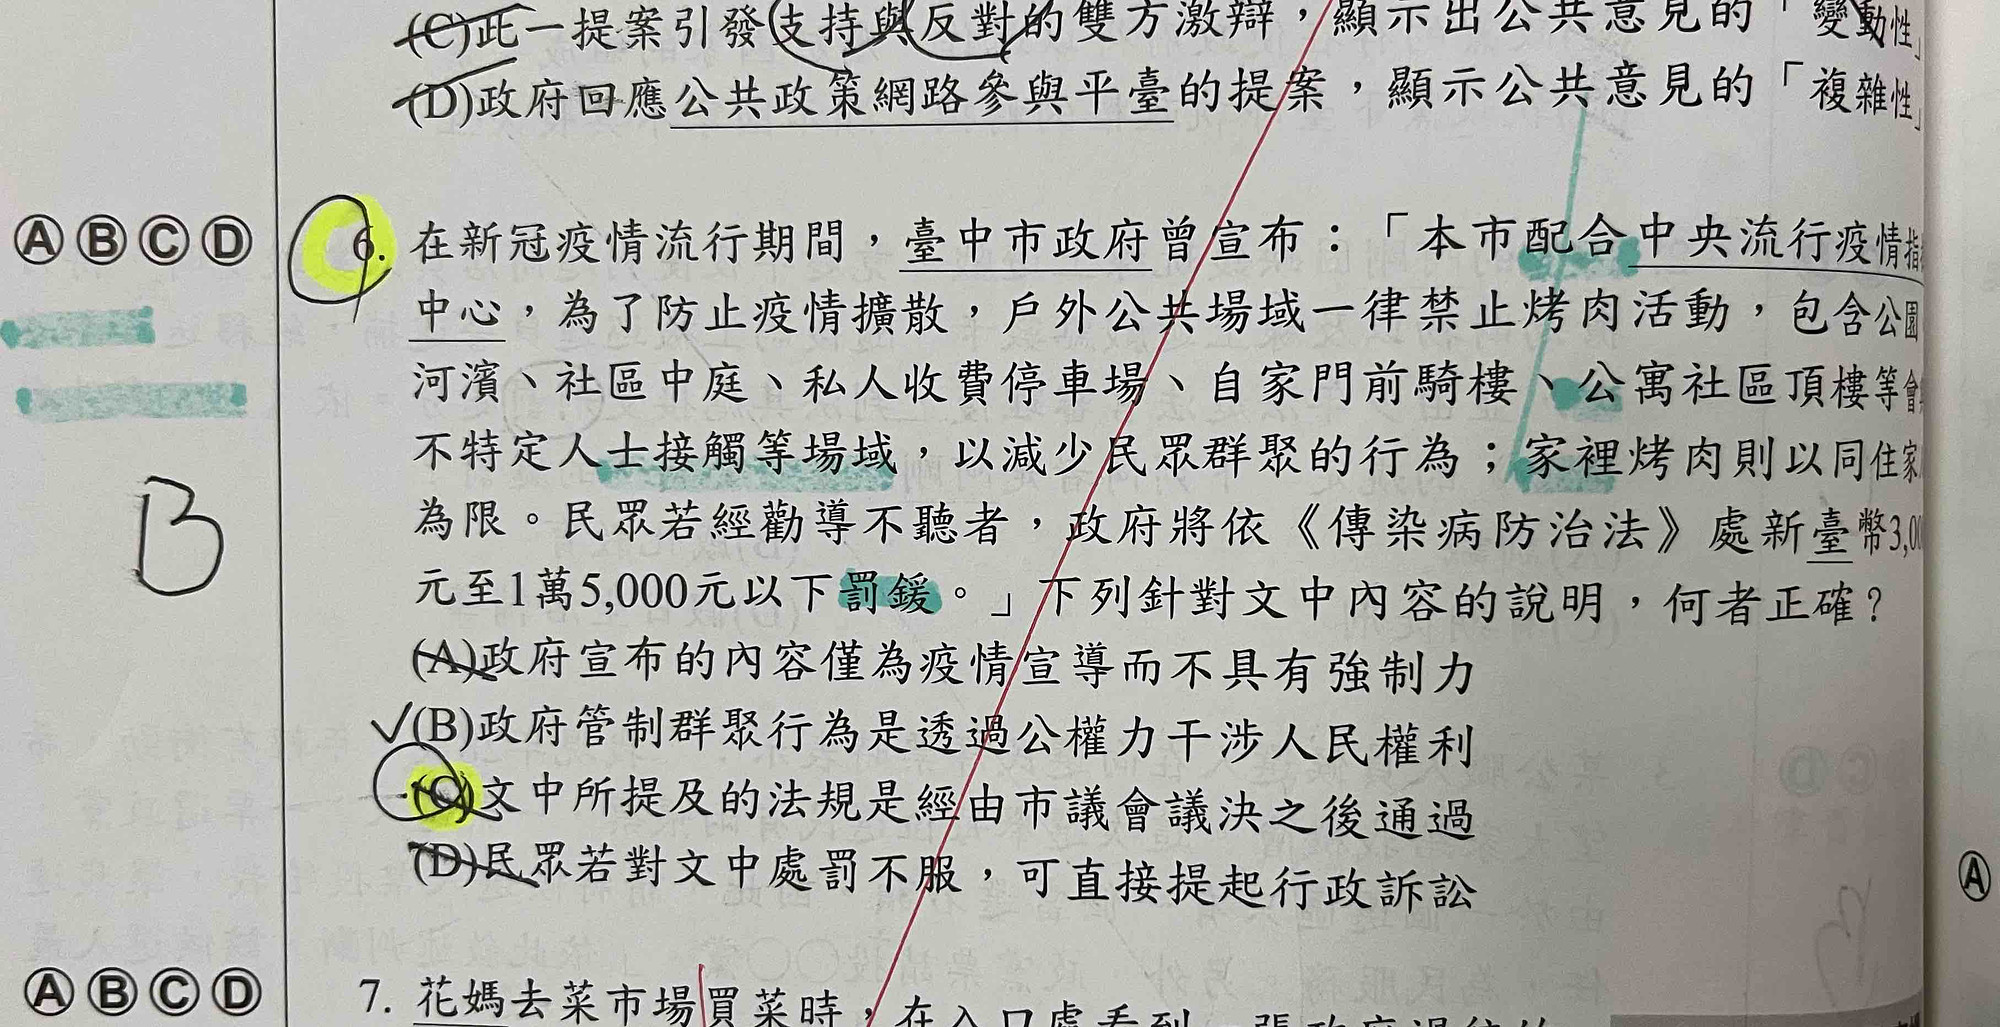 (C)此一提案引發支持與反對的雙方激辯，顯示出公共意見的「變動性」
(D)政府回應公共政策網路參與平臺的提案，顯示公共意見的「複雜性」
Ⓐ Ⓑ Ⓒ Ⓓ
6. 在新冠疫情流行期間，臺中市政府曾宣布：「本市配合中央流行疫情指揮
中心，為了防止疫情擴散，戶外公共場域一律禁止烤肉活動，包含公園
河濱、社區中庭、私人收費停車場、自家門前騎樓、公寓社區頂樓等會與
不特定人士接觸等場域，以減少民眾群聚的行為；家裡烤肉則以同住家
B
為限。民眾若經勸導不聽者，政府將依《傳染病防治法》處新臺幣3,00
元至1萬5,000元以下罰鍰。」下列針對文中內容的說明，何者正確？
(A)政府宣布的內容僅為疫情宣導而不具有強制力
(B)政府管制群聚行為是透過公權力干涉人民權利
(C)文中所提及的法規是經由市議會議決之後通過
(D)民眾若對文中處罰不服，可直接提起行政訴訟
Ⓐ
Ⓐ Ⓑ Ⓒ Ⓓ
7. 花媽去菜市場買菜時，在入口處看到一張政府過往的